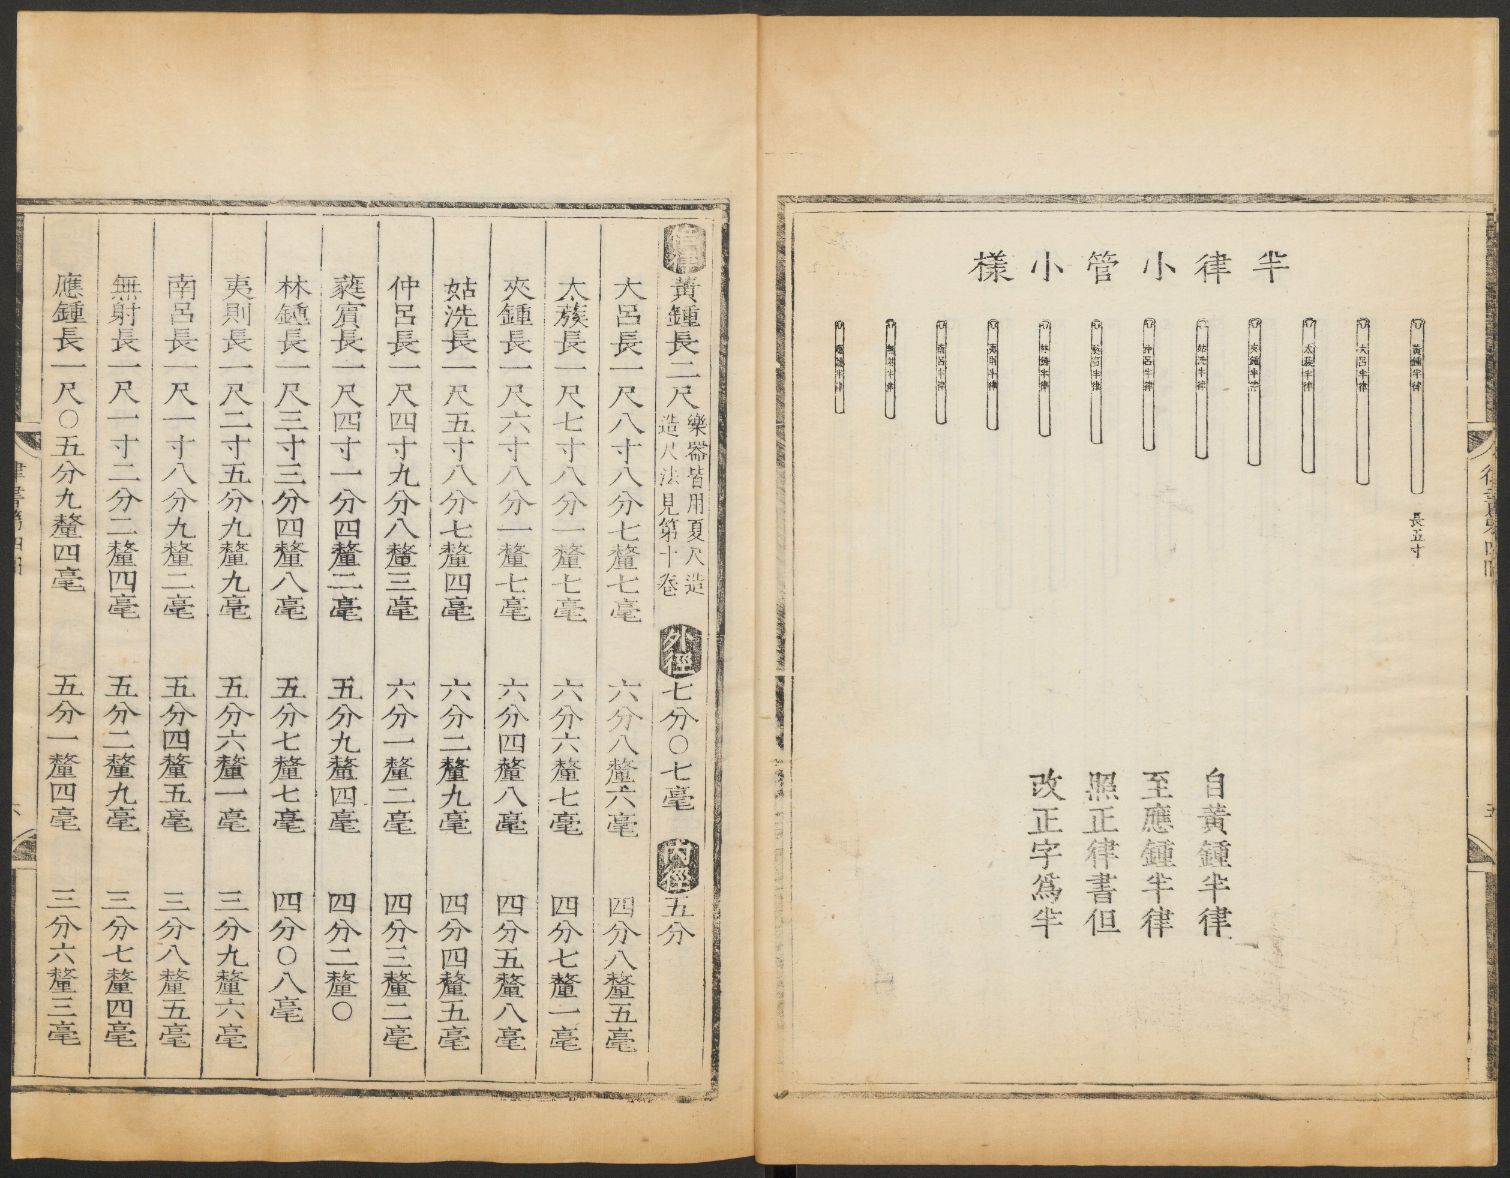 半律小管小樣
黃鍾半律
長五寸
大呂半律
太蔟半律
夾鍾半律
姑洗半律
仲呂半律
蕤賓半律
林鍾半律
夷則半律
南呂半律
無射半律
應鍾半律
自黃鍾半律
至應鍾半律
照正律書但
改正字爲半
倍律黃鍾長二尺樂器皆用夏尺造造尺法見第十卷外徑七分〇七毫內徑五分
大呂長一尺八寸八分七釐七毫 六分八釐六毫 四分八釐五毫
太蔟長一尺七寸八分一釐七毫 六分六釐七毫 四分七釐一毫
夾鍾長一尺六寸八分一釐七毫 六分四釐八毫 四分五釐八毫
姑洗長一尺五寸八分七釐四毫 六分二釐九毫 四分四釐五毫
仲呂長一尺四寸九分八釐三毫 六分一釐二毫 四分三釐二毫
蕤賓長一尺四寸一分四釐二毫 五分九釐四毫 四分二釐〇
林鍾長一尺三寸三分四釐八毫 五分七釐七毫 四分〇八毫
夷則長一尺二寸五分九釐九毫 五分六釐一毫 三分九釐六毫
南呂長一尺一寸八分九釐二毫 五分四釐五毫 三分八釐五毫
無射長一尺一寸二分二釐四毫 五分二釐九毫 三分七釐四毫
應鍾長一尺〇五分九釐四毫 五分一釐四毫 三分六釐三毫